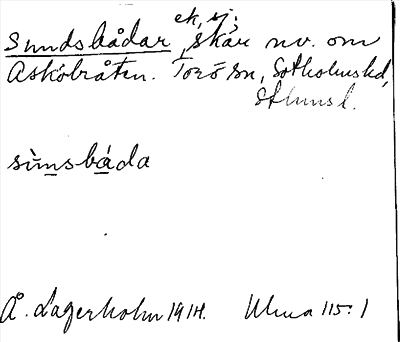 Sundsbådar, ek, sj; skär nv. om
Asköbråten. Torö sn, Sotholms hd,
Sthms l.
sùmsbáda
Å. Lagerholm 1914. Ulma 115:1